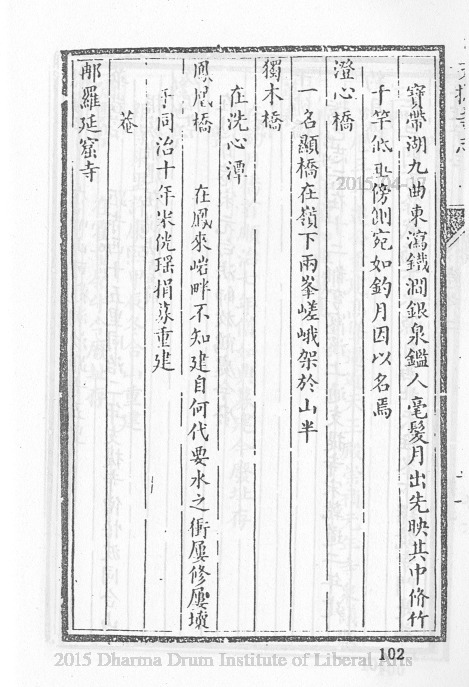 寶帶湖九曲東瀉鐵澗銀泉鑑人毫髮月出先映其中脩竹
千竿低亞傍側宛如釣月因以名焉
澄心橋
一名顯橋在嶺下兩峯嵯峨架於山半
獨木橋
在洗心潭
鳳凰橋 在鳳來岩畔不知建自何代要水之衝屢修屢壞
于同治十年米侊瑶捐募重建
菴
那羅延窟寺
102
2015-04-17
2015 Dharma Drum Institute of Liberal Arts